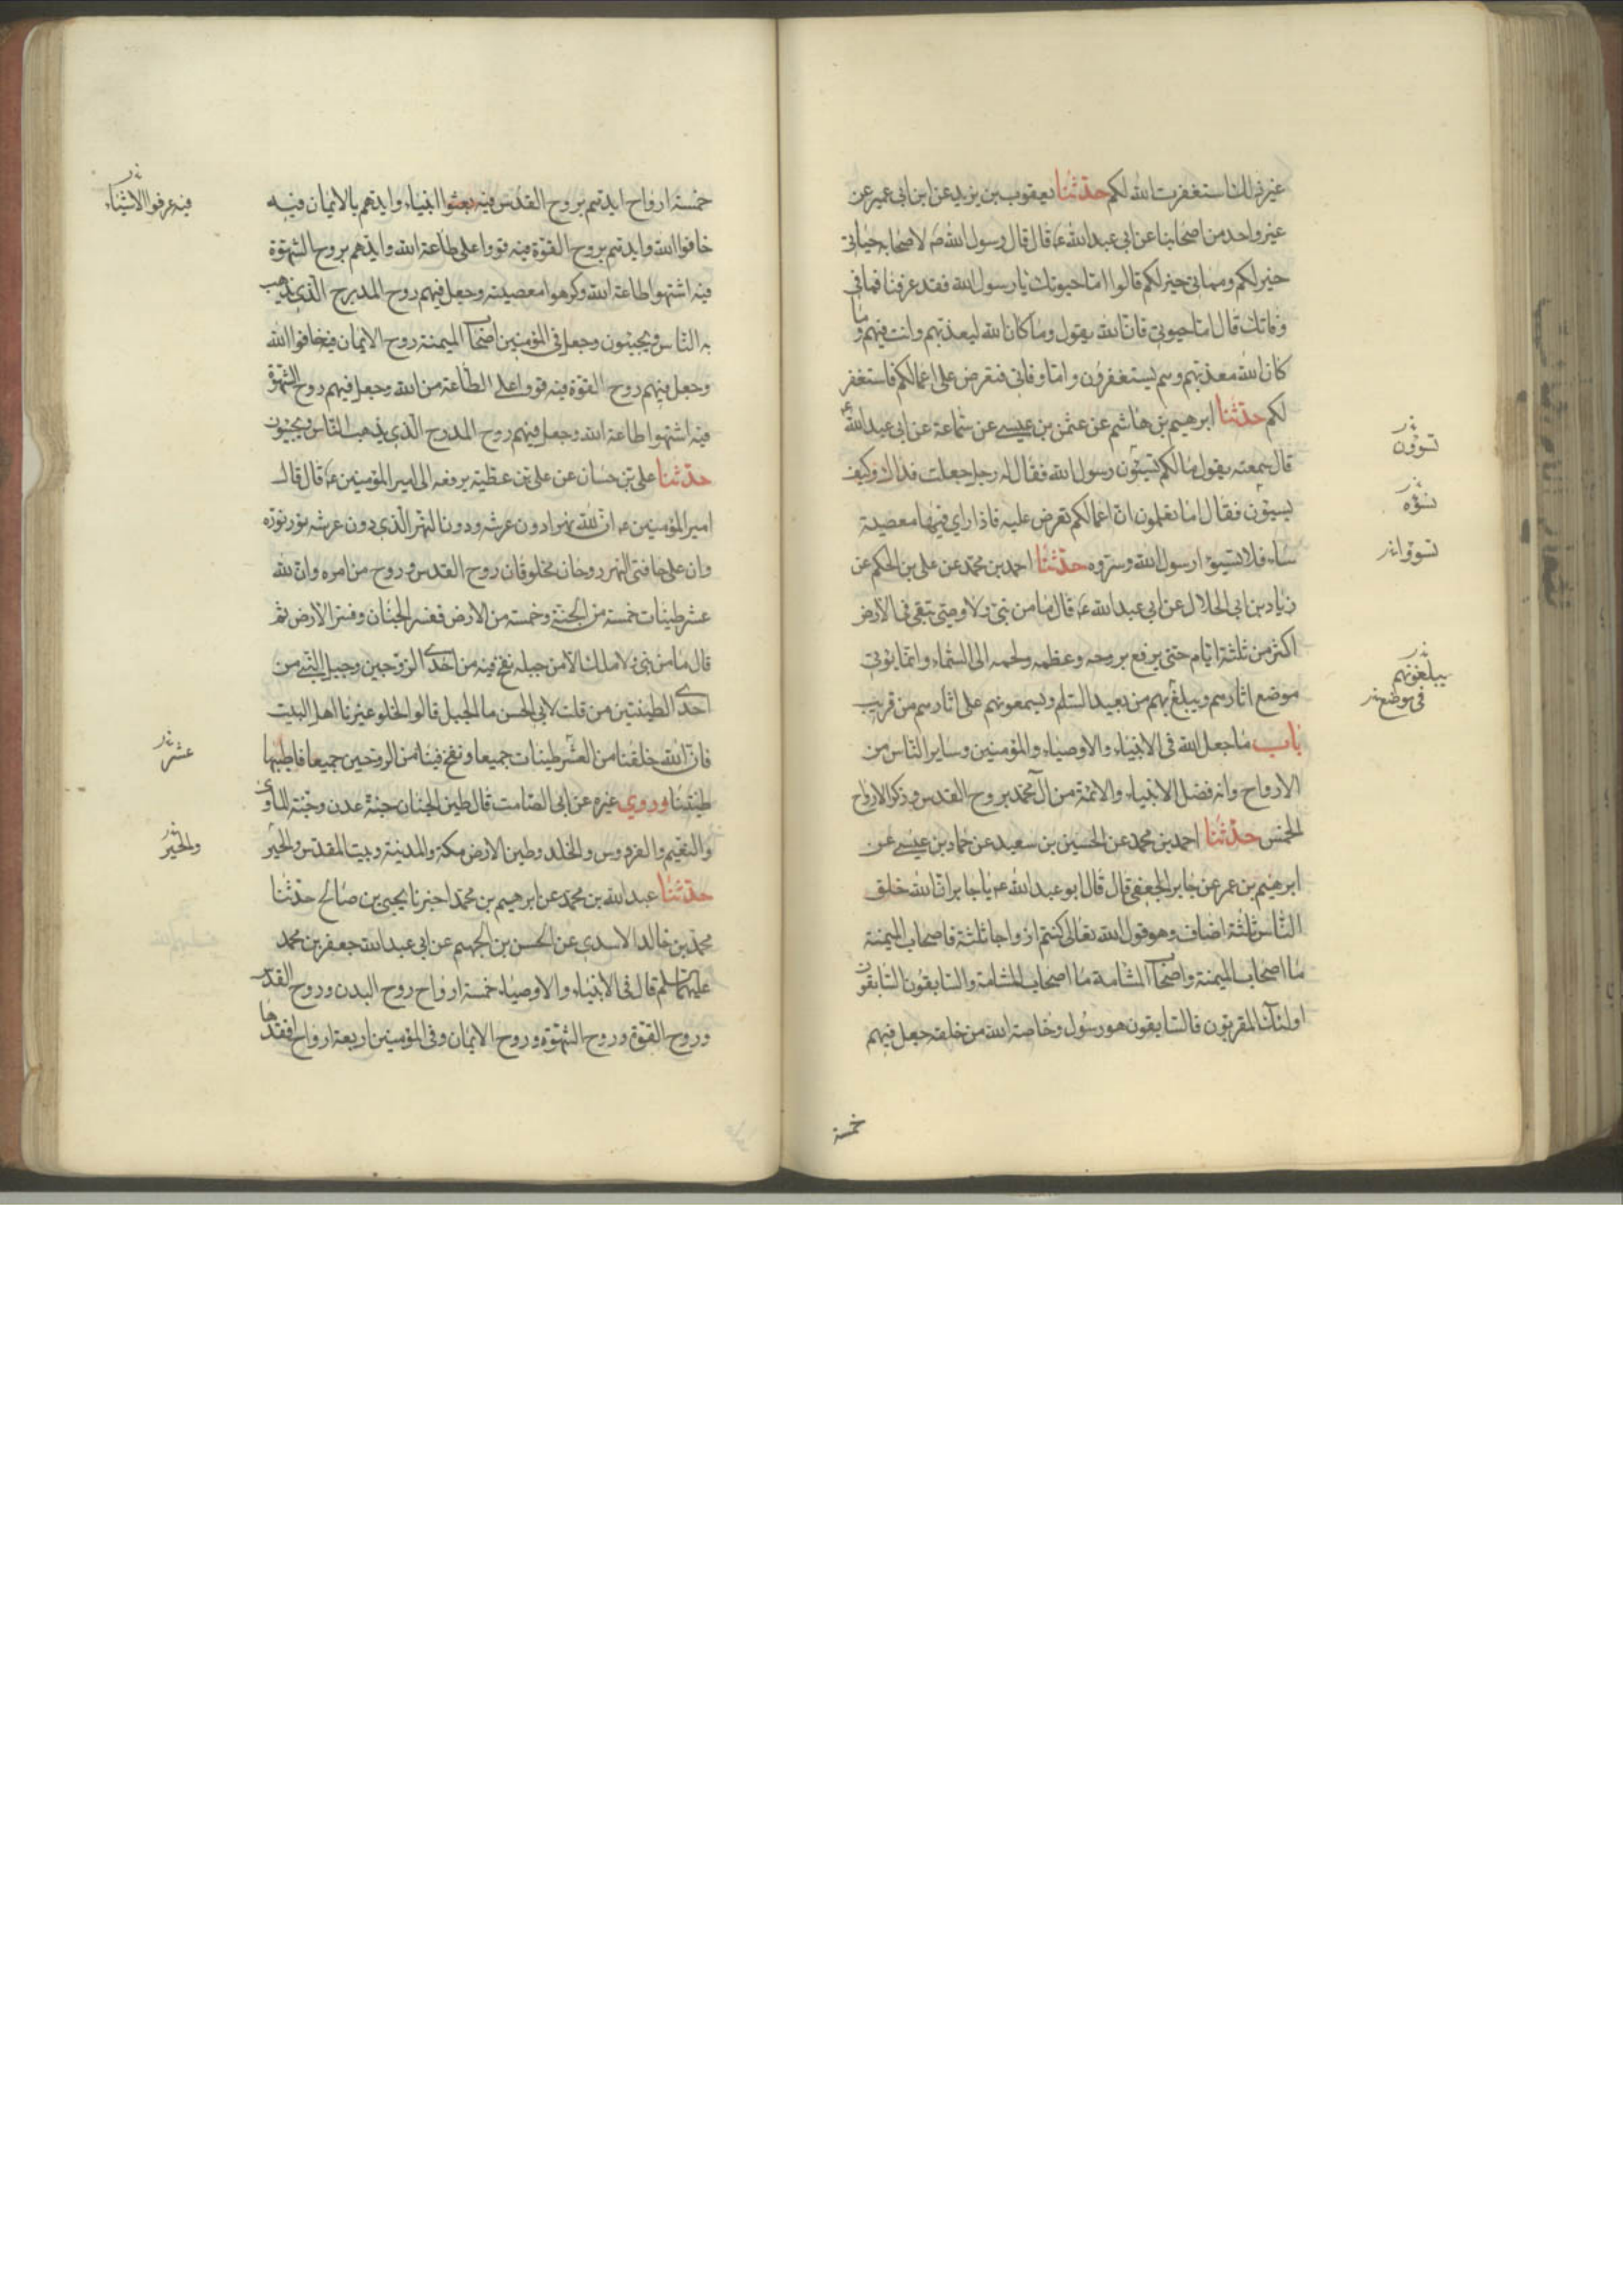 غير ذلك استغفرت الله لكم حدثنا يعقوب بن يزيد عن ابن ابي عمير عن
غير واحد من اصحابنا عن ابي عبد الله ع قال قال رسول الله ص لاصحابه حياتي
خير لكم ومماتي خير لكم قالوا اما حيوتك يا رسول الله فقد عرفنا فما في
وفاتك قال اما حيوتي فان الله يقول وما كان الله ليعذبهم وانت فيهم وما
كان الله معذبهم وهم يستغفرون واما وفاتي فتعرض علي اعمالكم فاستغفر
لكم حدثنا ابرهيم بن هاشم عن عثمن بن عيسى عن سماعة عن ابي عبد الله ع
قال سمعته يقول ما لكم تسيئون رسول الله فقال له رجل جعلت فداك وكيف
نسيئون فقال اما تعلمون ان اعمالكم تعرض عليه فاذا راي فيها معصية
ساءه فلا تسيئوا رسول الله وسروه حدثنا احمد بن محمد عن علي بن الحكم عن
زياد بن ابي الحلال عن ابي عبد الله ع قال ما من نبي ولا وصي يبقى في الارض
اكثر من ثلثة ايام حتى يرفع بروحه وعظمه ولحمه الى السماء وانما يؤتي
موضع اثارهم ويبلغ بهم من بعيد السلم ويسمعونهم على اثارهم من قريب
باب ما جعل الله في الانبياء والاوصياء والمؤمنين وساير الناس من
الارواح وانه فضل الانبياء والائمة من آل محمد بروح القدس وذكر الارواح
الخمس حدثنا احمد بن محمد عن الحسين بن سعيد عن حماد بن عيسى عن
ابرهيم بن عمر عن جابر الجعفي قال قال ابو عبد الله ع يا جابر ان الله خلق
الناس ثلثة اصناف وهو قول الله تعالى كنتم ازواجا ثلثة فاصحاب الميمنة
ما اصحاب الميمنة واصحاب المشامة ما اصحاب المشامة والسابقون السابقون
اولئك المقربون فالسابقون هو رسول وخاصة الله من خلقه جعل فيهم
خمسة
تسوؤن
نسؤه
تسوؤا
يبلغونهم
في موضع
خمسة ارواح ايدهم بروح القدس فيه بعثوا انبياء وايدهم بالايمان فيه
خافوا الله وايدهم بروح القوة فيه قووا على طاعة الله وايدهم بروح الشهوة
فيه اشتهوا طاعة الله وكرهوا معصيته وجعل فيهم روح المدرج الذي يذهب
به الناس ويجيئون وجعل في المؤمنين اصحاب الميمنة روح الايمان فيه خافوا الله
وجعل فيهم روح القوة فيه قووا على الطاعة من الله وجعل فيهم روح الشهوة
فيه اشتهوا طاعة الله وجعل فيهم روح المدرج الذي يذهب الناس ويجيئون
حدثنا علي بن حسان عن علي بن عطية يرفعه الى امير المؤمنين ع قال قال
امير المؤمنين ع ان لله نهرا دون عرشه ودون النهر الذي دون عرشه نور نوره
وان على حافتي النهر روحان مخلوقان روح القدس وروح من امره وان لله
عشر طينات خمسة من الجنة وخمسة من الارض ففسر الجنان وفسر الارض ثم
قال ما من نبي ولا ملك الا من جبله نفخ فيه من احدى الروحين وجبل النبي من
احدى الطينتين من قلت لابي الحسن ما الجبل قال والخلو غيرنا اهل البيت
فان الله خلقنا من العشر طينات جميعا ونفخ فينا من الروحين جميعا فاطيبها
طينتنا وروي غيره عن ابي الصامت قال طين الجنان جنة عدن وجنة الماوى
والنعيم والفردوس والخلد وطين الارض مكة والمدينة وبيت المقدس والحير
حدثنا عبد الله بن محمد عن ابرهيم بن محمد اخبرنا يحيى بن صالح حدثنا
محمد بن خالد الاسدي عن الحسن بن الجهم عن ابي عبد الله جعفر بن محمد
عليهما السلم قال في الانبياء والاوصياء خمسة ارواح روح البدن وروح القدس
وروح القوة وروح الشهوة وروح الايمان وفي المؤمنين اربعة ارواح افقدها
فيه عرفوا الاشياء
عشر
والحير